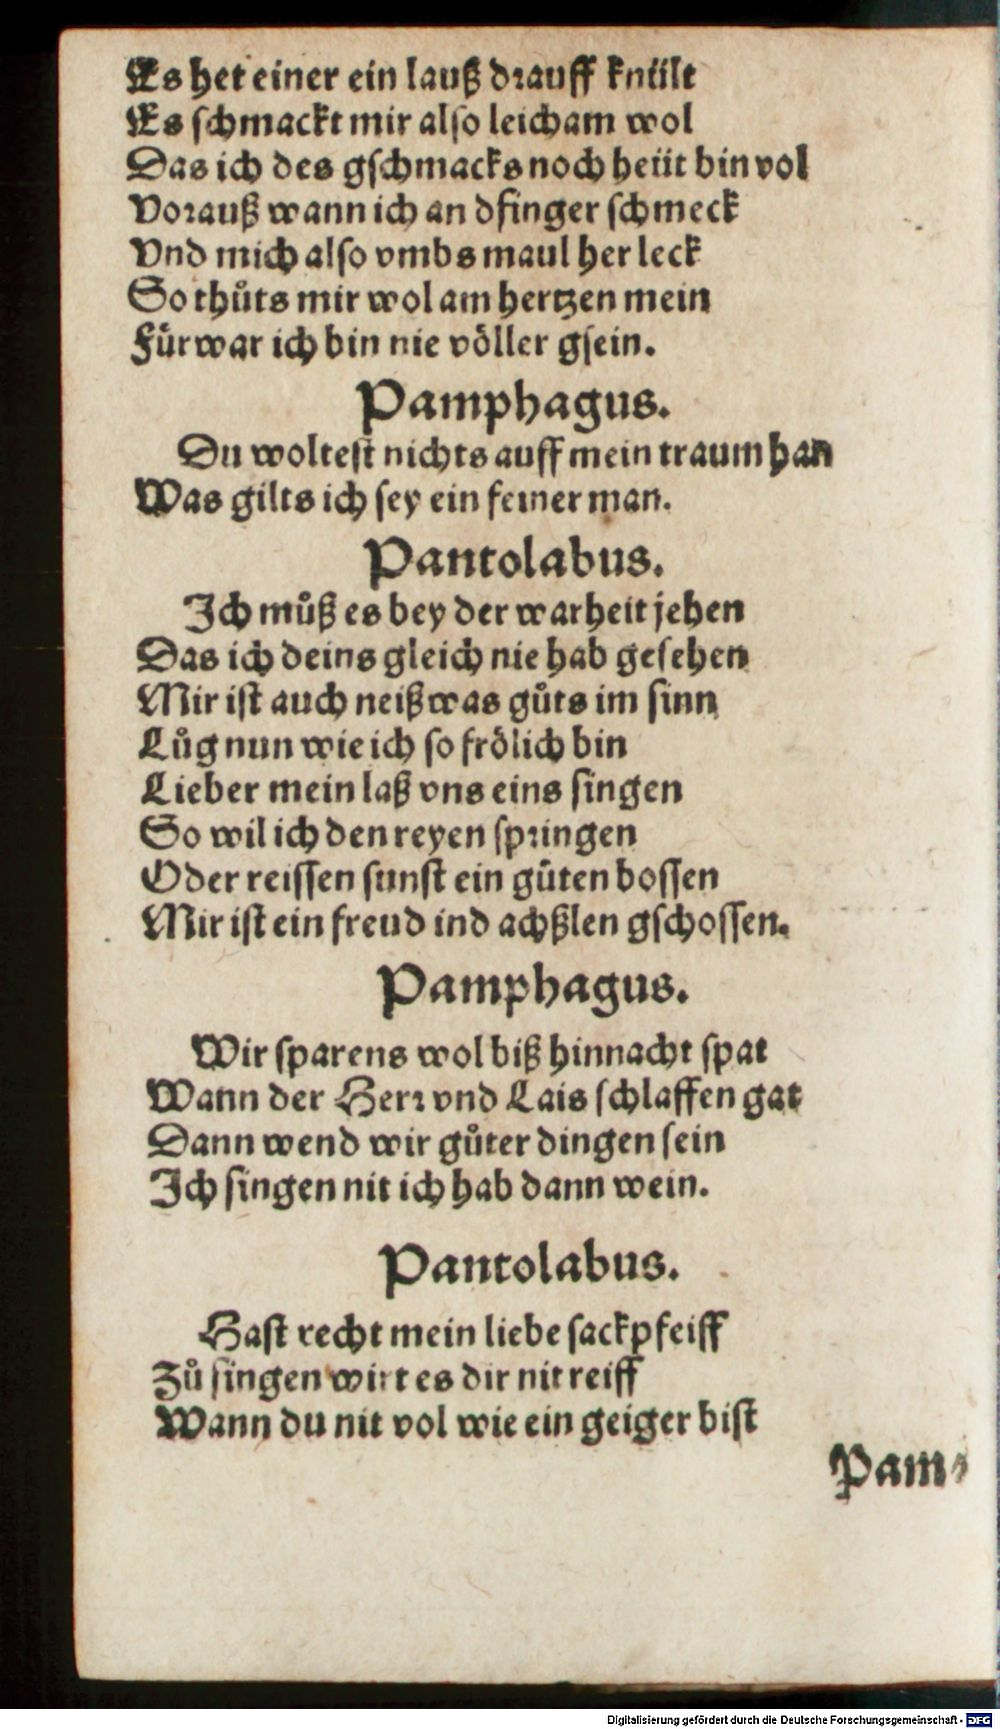 Es het einer ein lauß drauff knült
Es schmackt mir also leicham wol
Das ich des gschmacks noch heüt bin vol
Vorauß wann ich an dfinger schmeck
Vnd mich also vmbs maul her leck
So thůts mir wol am hertzen mein
Fürwar ich bin nie völler gsein.
Pamphagus.
Du woltest nichts auff mein traum han
Was gilts ich sey ein feiner man.
Pantolabus.
Ich můß es bey der warheit jehen
Das ich deins gleich nie hab gesehen
Mir ist auch neißwas gůts im sinn
Lůg nun wie ich so frölich bin
Lieber mein laß vns eins singen
So wil ich den reyen springen
Oder reissen sunst ein gůten bossen
Mir ist ein freud ind achßlen gschossen.
Pamphagus.
Wir sparens wol biß hinnacht spat
Wann der Herr vnd Lais schlaffen gat
Dann wend wir gůter dingen sein
Ich singen nit ich hab dann wein.
Pantolabus.
Hast recht mein liebe sackpfeiff
Zů singen wirt es dir nit reiff
Wann du nit vol wie ein geiger bist
Pam⸗
Digitalisierung gefördert durch die Deutsche Forschungsgemeinschaft - DFG